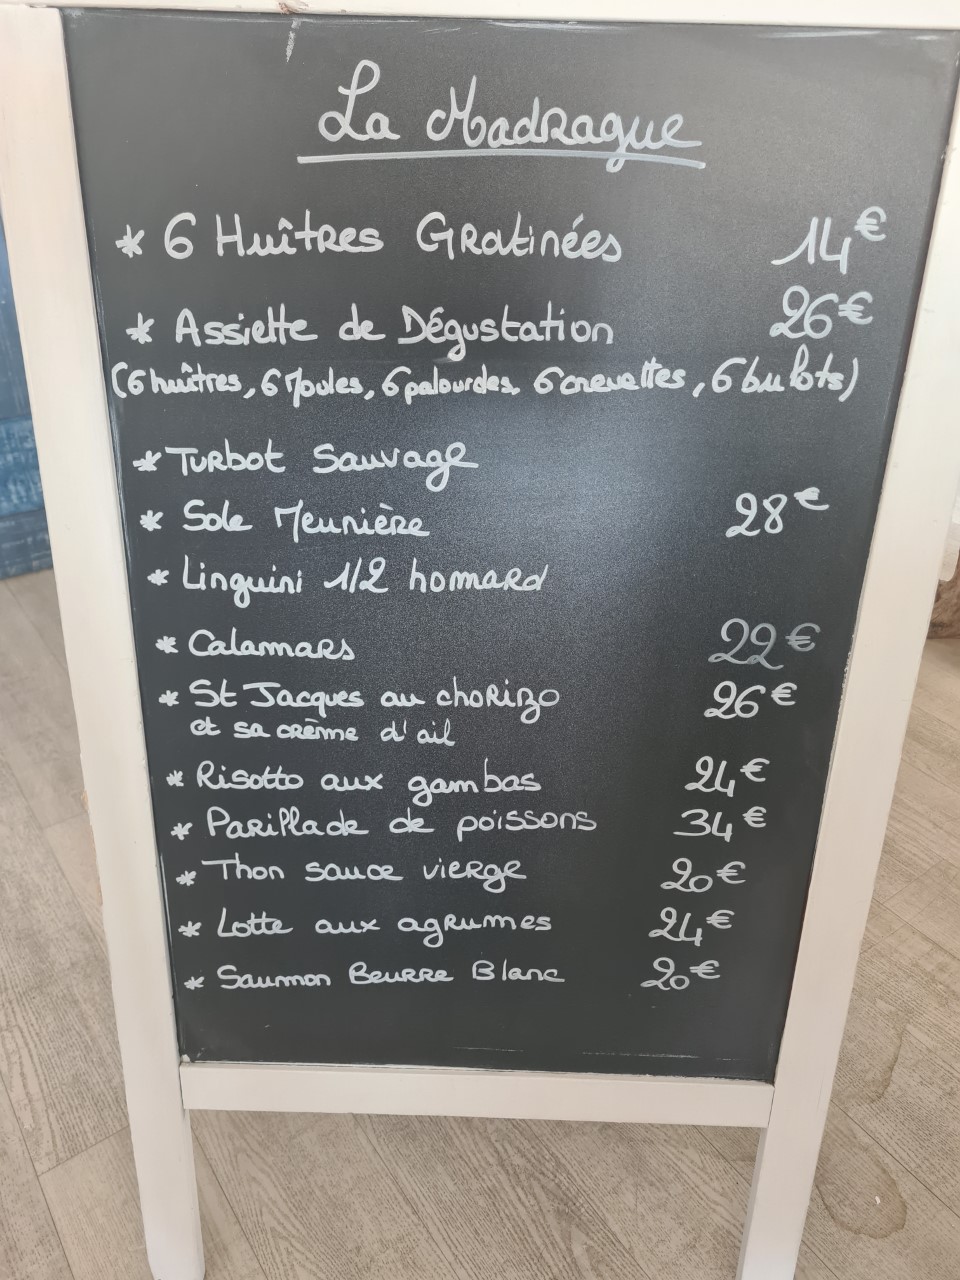 La Madrague
* 6 Huîtres Gratinées 14€
* Assiette de Dégustation 26€
(6 huîtres, 6 Moules, 6 palourdes, 6 crevettes, 6 bulots)
* Turbot Sauvage
* Sole Meunière 28€
* Linguini 1/2 homard
* Calamars 22€
* St Jacques au chorizo 26€
et sa crème d'ail
* Risotto aux gambas 24€
* Parillade de poissons 34€
* Thon sauce vierge 20€
* Lotte aux agrumes 24€
* Saumon Beurre Blanc 20€